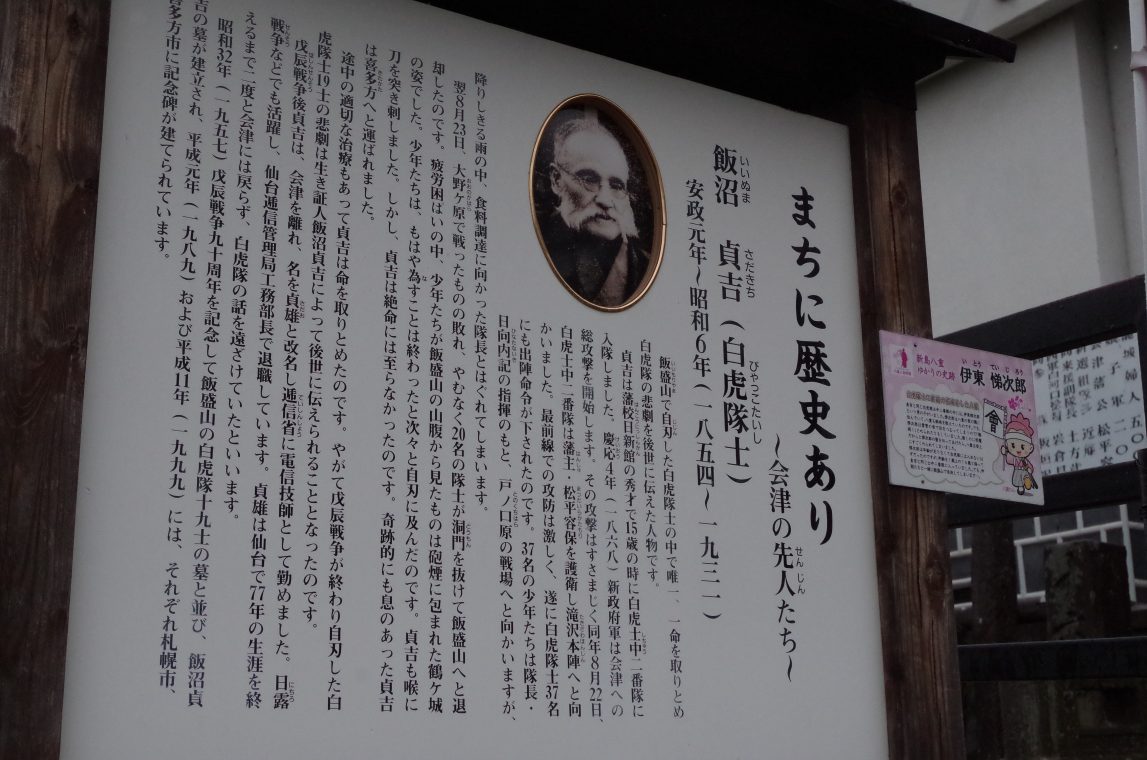 まちに歴史あり
～会津の先人たち～
飯沼 貞吉（白虎隊士）
安政元年～昭和6年（一八五四～一九三一）
飯盛山で自刃した白虎隊士の中で唯一、一命を取りとめ
白虎隊の悲劇を後世に伝えた人物です。
貞吉は藩校日新館の秀才で15歳の時に白虎士中二番隊に
入隊しました。慶応4年（一八六八）新政府軍は会津への
総攻撃を開始します。その攻撃はすさまじく同年8月22日、
白虎士中二番隊は藩主・松平容保を護衛し滝沢本陣へと向
かいました。最前線での攻防は激しく、遂に白虎隊士37名
にも出陣命令が下されたのです。37名の少年たちは隊長・
日向内記の指揮のもと、戸ノ口原の戦場へと向かいますが、
降りしきる雨の中、食料調達に向かった隊長とはぐれてしまいます。
翌8月23日、大野ヶ原で戦ったものの敗れ、やむなく20名の隊士が洞門を抜けて飯盛山へと退
却したのです。疲労困ぱいの中、少年たちが飯盛山の山腹から見たものは砲煙に包まれた鶴ヶ城
の姿でした。少年たちは、もはや為すことは終わったと次々と自刃に及んだのです。貞吉も喉に
刀を突き刺しました。しかし、貞吉は絶命には至らなかったのです。奇跡的にも息のあった貞吉
は喜多方へと運ばれました。
途中の適切な治療もあって貞吉は命を取りとめたのです。やがて戊辰戦争が終わり自刃した白
虎隊士19士の悲劇は生き証人飯沼貞吉によって後世に伝えられることとなったのです。
戊辰戦争後貞吉は、会津を離れ、名を貞雄と改名し逓信省に電信技師として勤めました。日露
戦争などでも活躍し、仙台逓信管理局工務部長で退職しています。貞雄は仙台で77年の生涯を終
えるまで二度と会津には戻らず、白虎隊の話を遠ざけていたといいます。
昭和32年（一九五七）戊辰戦争九十周年を記念して飯盛山の白虎隊十九士の墓と並び、飯沼貞
吉の墓が建立され、平成元年（一九八九）および平成11年（一九九九）には、それぞれ札幌市、
喜多方市に記念碑が建てられています。
新島八重
ゆかりの史跡
伊東 悌次郎
會